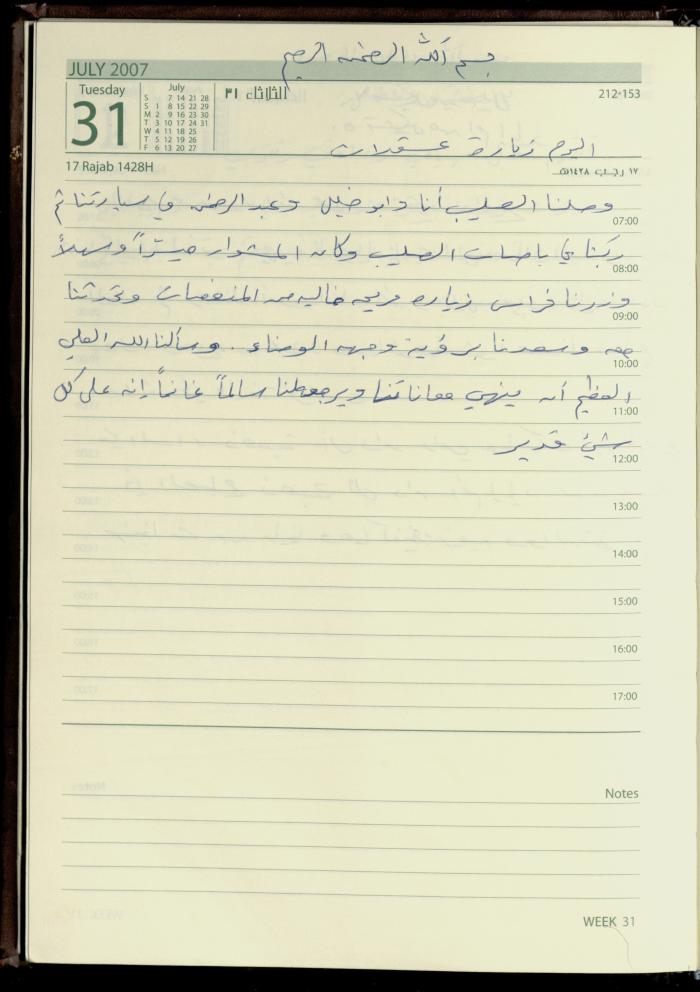 بسم الله الرحمن الرحيم
JULY 2007
Tuesday
31
July
S 7 14 21 28
S 1 8 15 22 29
M 2 9 16 23 30
T 3 10 17 24 31
W 4 11 18 25
T 5 12 19 26
F 6 13 20 27
الثلاثاء ٣١
212-153
اليوم زيارة عسقلان
17 Rajab 1428H
١٧ رجب ١٤٢٨هـ
وصلنا الصليب أنا وابو خليل وعبد الرحمن في سيارتنا ثم
07:00
ركبنا في باصات الصليب وكان المشوار ميسّراً وسهلاً
08:00
وزرنا فراس زياره مريحه خاليه من المنغصات وتحدثنا
09:00
معه وسعدنا برؤية وجهه الوضاء . وسألنا الله العلي
10:00
العظيم أن ينهي معاناتنا ويرجعه لنا سالماً غانماً إنه على كل
11:00
شيء قدير
12:00
13:00
14:00
15:00
16:00
17:00
Notes
WEEK 31